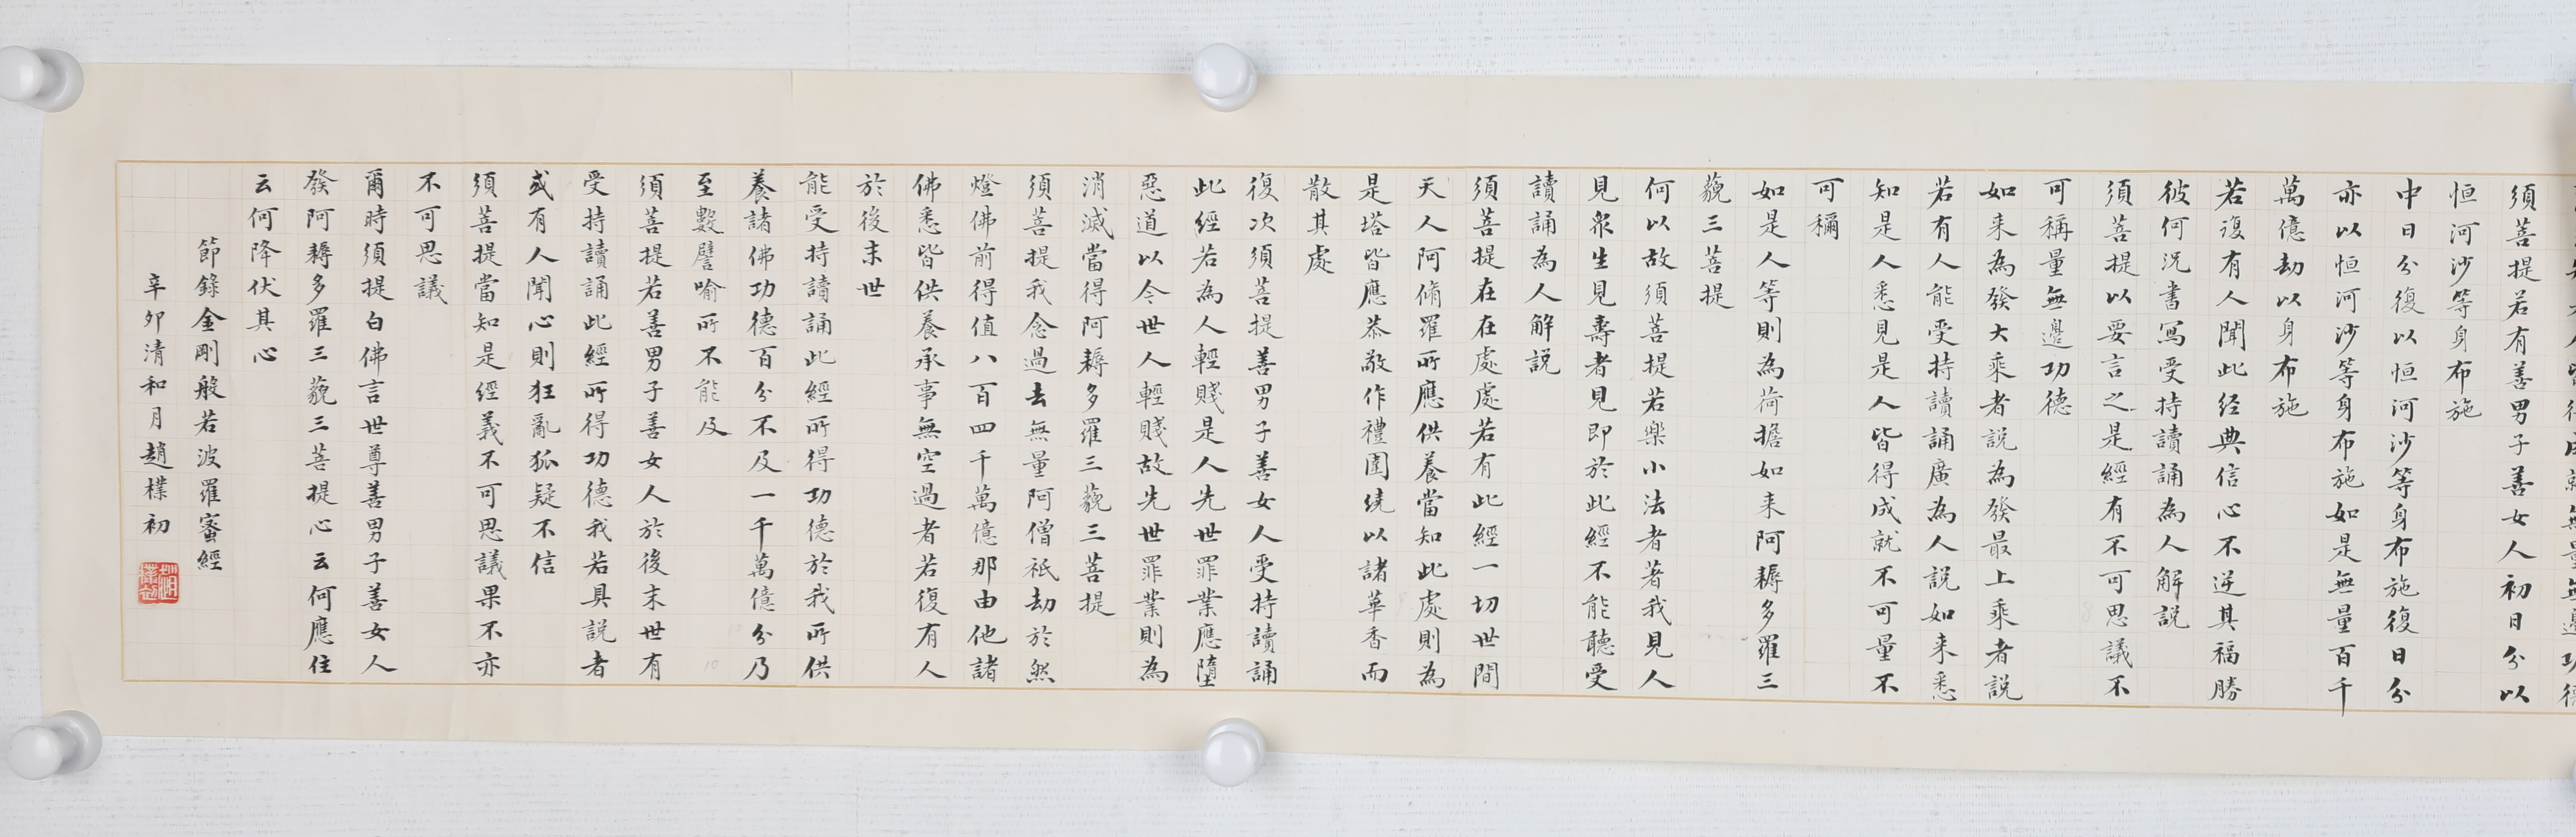 須菩提若有善男子善女人初日分以
恒河沙等身布施
中日分復以恒河沙等身布施復日分
亦以恒河沙等身布施如是無量百千
萬億劫以身布施
若復有人聞此经典信心不逆其福勝
彼何況書寫受持讀誦為人解説
須菩提以要言之是經有不可思議不
可稱量無邊功德
如来為發大乘者説為發最上乘者説
若有人能受持讀誦廣為人説如来悉
知是人悉見是人皆得成就不可量不
可稱
如是人等則為荷擔如来阿耨多羅三
藐三菩提
何以故須菩提若樂小法者著我見人
見衆生見壽者見即於此經不能聽受
讀誦為人解説
須菩提在在處處若有此經一切世間
天人阿脩羅所應供養當知此處則為
是塔皆應恭敬作禮圍绕以諸華香而
散其處
復次須菩提善男子善女人受持讀誦
此經若為人輕賤是人先世罪業應墮
惡道以今世人輕賤故先世罪業則為
消滅當得阿耨多羅三藐三菩提
須菩提我念過去無量阿僧祇劫於然
燈佛前得值八百四千萬億那由他諸
佛悉皆供養承事無空過者若復有人
於後末世
能受持讀誦此經所得功德於我所供
養諸佛功德百分不及一千萬億分乃
至數譬喻所不能及
須菩提若善男子善女人於後末世有
受持讀誦此經所得功德我若具説者
或有人聞心則狂亂狐疑不信
須菩提當知是經義不可思議果不亦
不可思議
爾時須提白佛言世尊善男子善女人
發阿耨多羅三藐三菩提心云何應住
云何降伏其心
節錄金剛般若波羅蜜經
辛卯清和月趙樸初